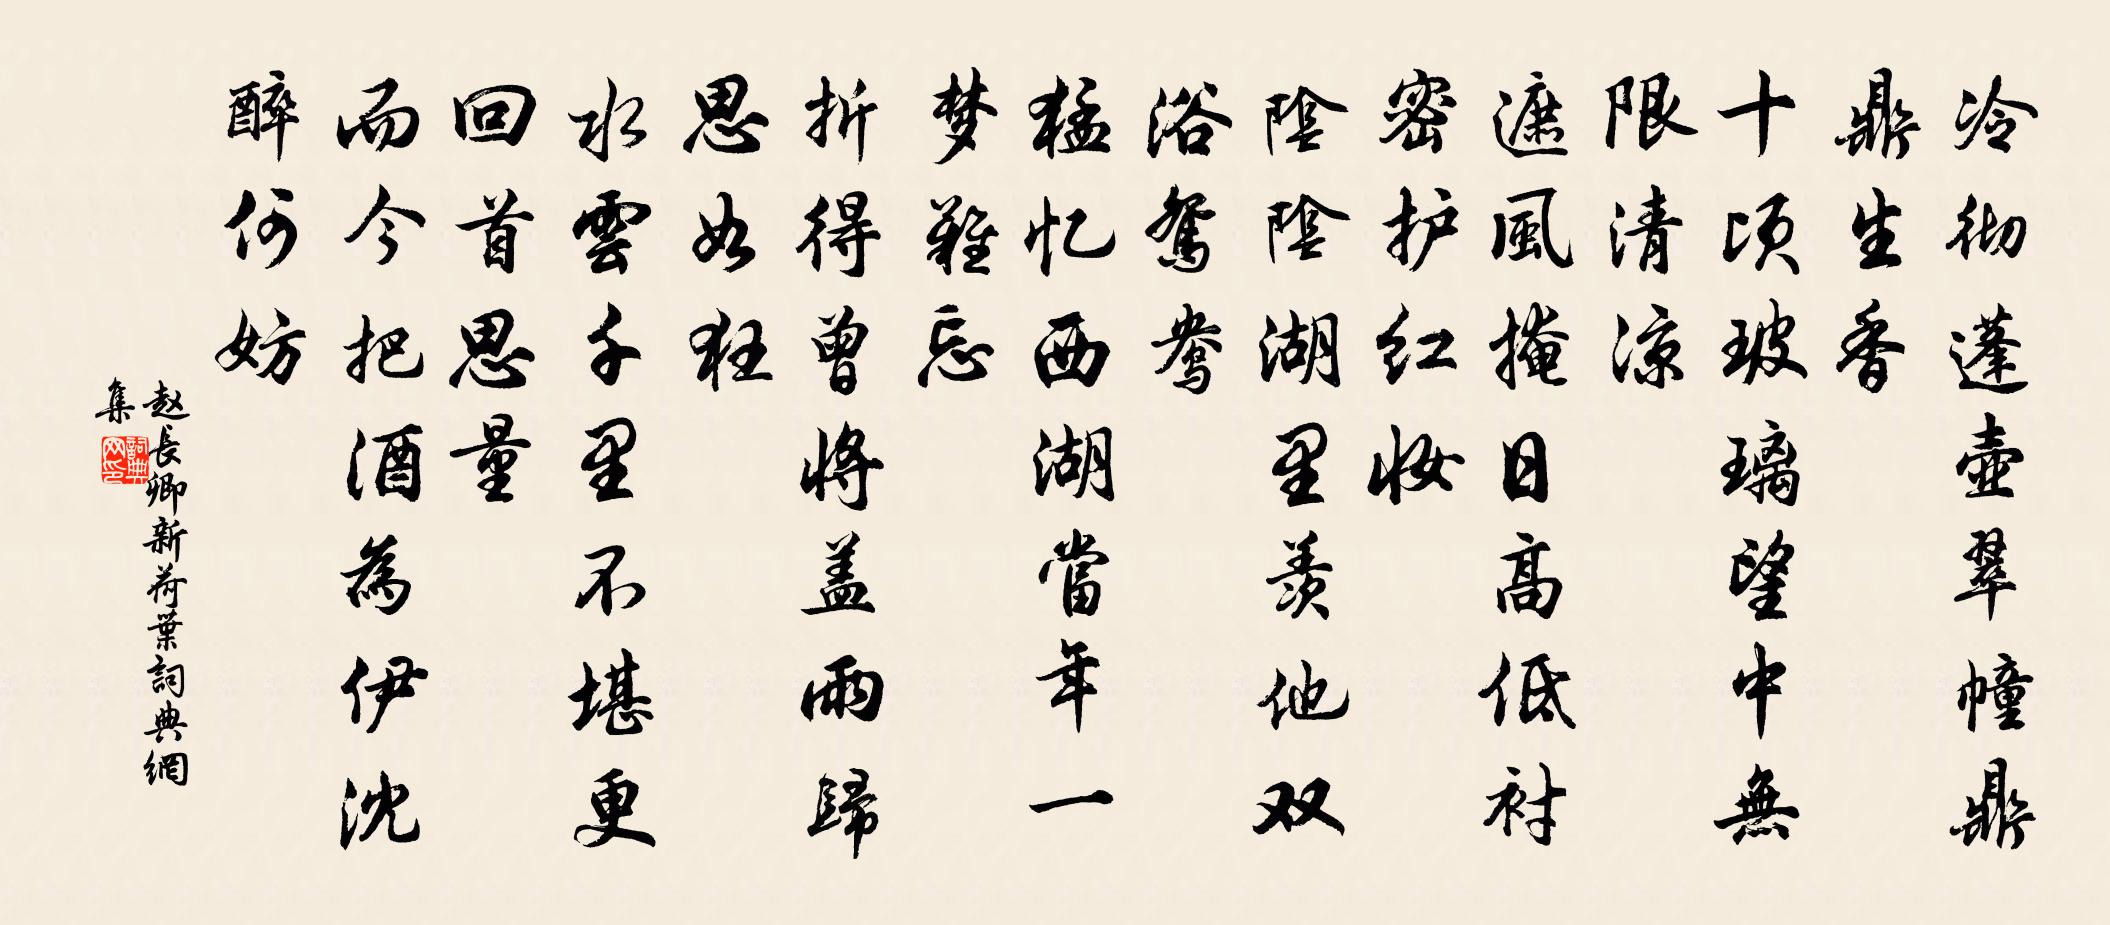 冷彻蓬壶翠幢鼎
鼎生香
十顷玻璃望中無
限清涼
遮風掩日高低衬
密护红妆
陰陰湖里羡他双
浴鸳鸯
猛忆西湖當年一
梦難忘
折得曾將盖雨歸
思如狂
水雲千里不堪更
回首思量
而今把酒為伊沈
醉何妨
赵長卿新荷葉詞典網
集
詞典网印